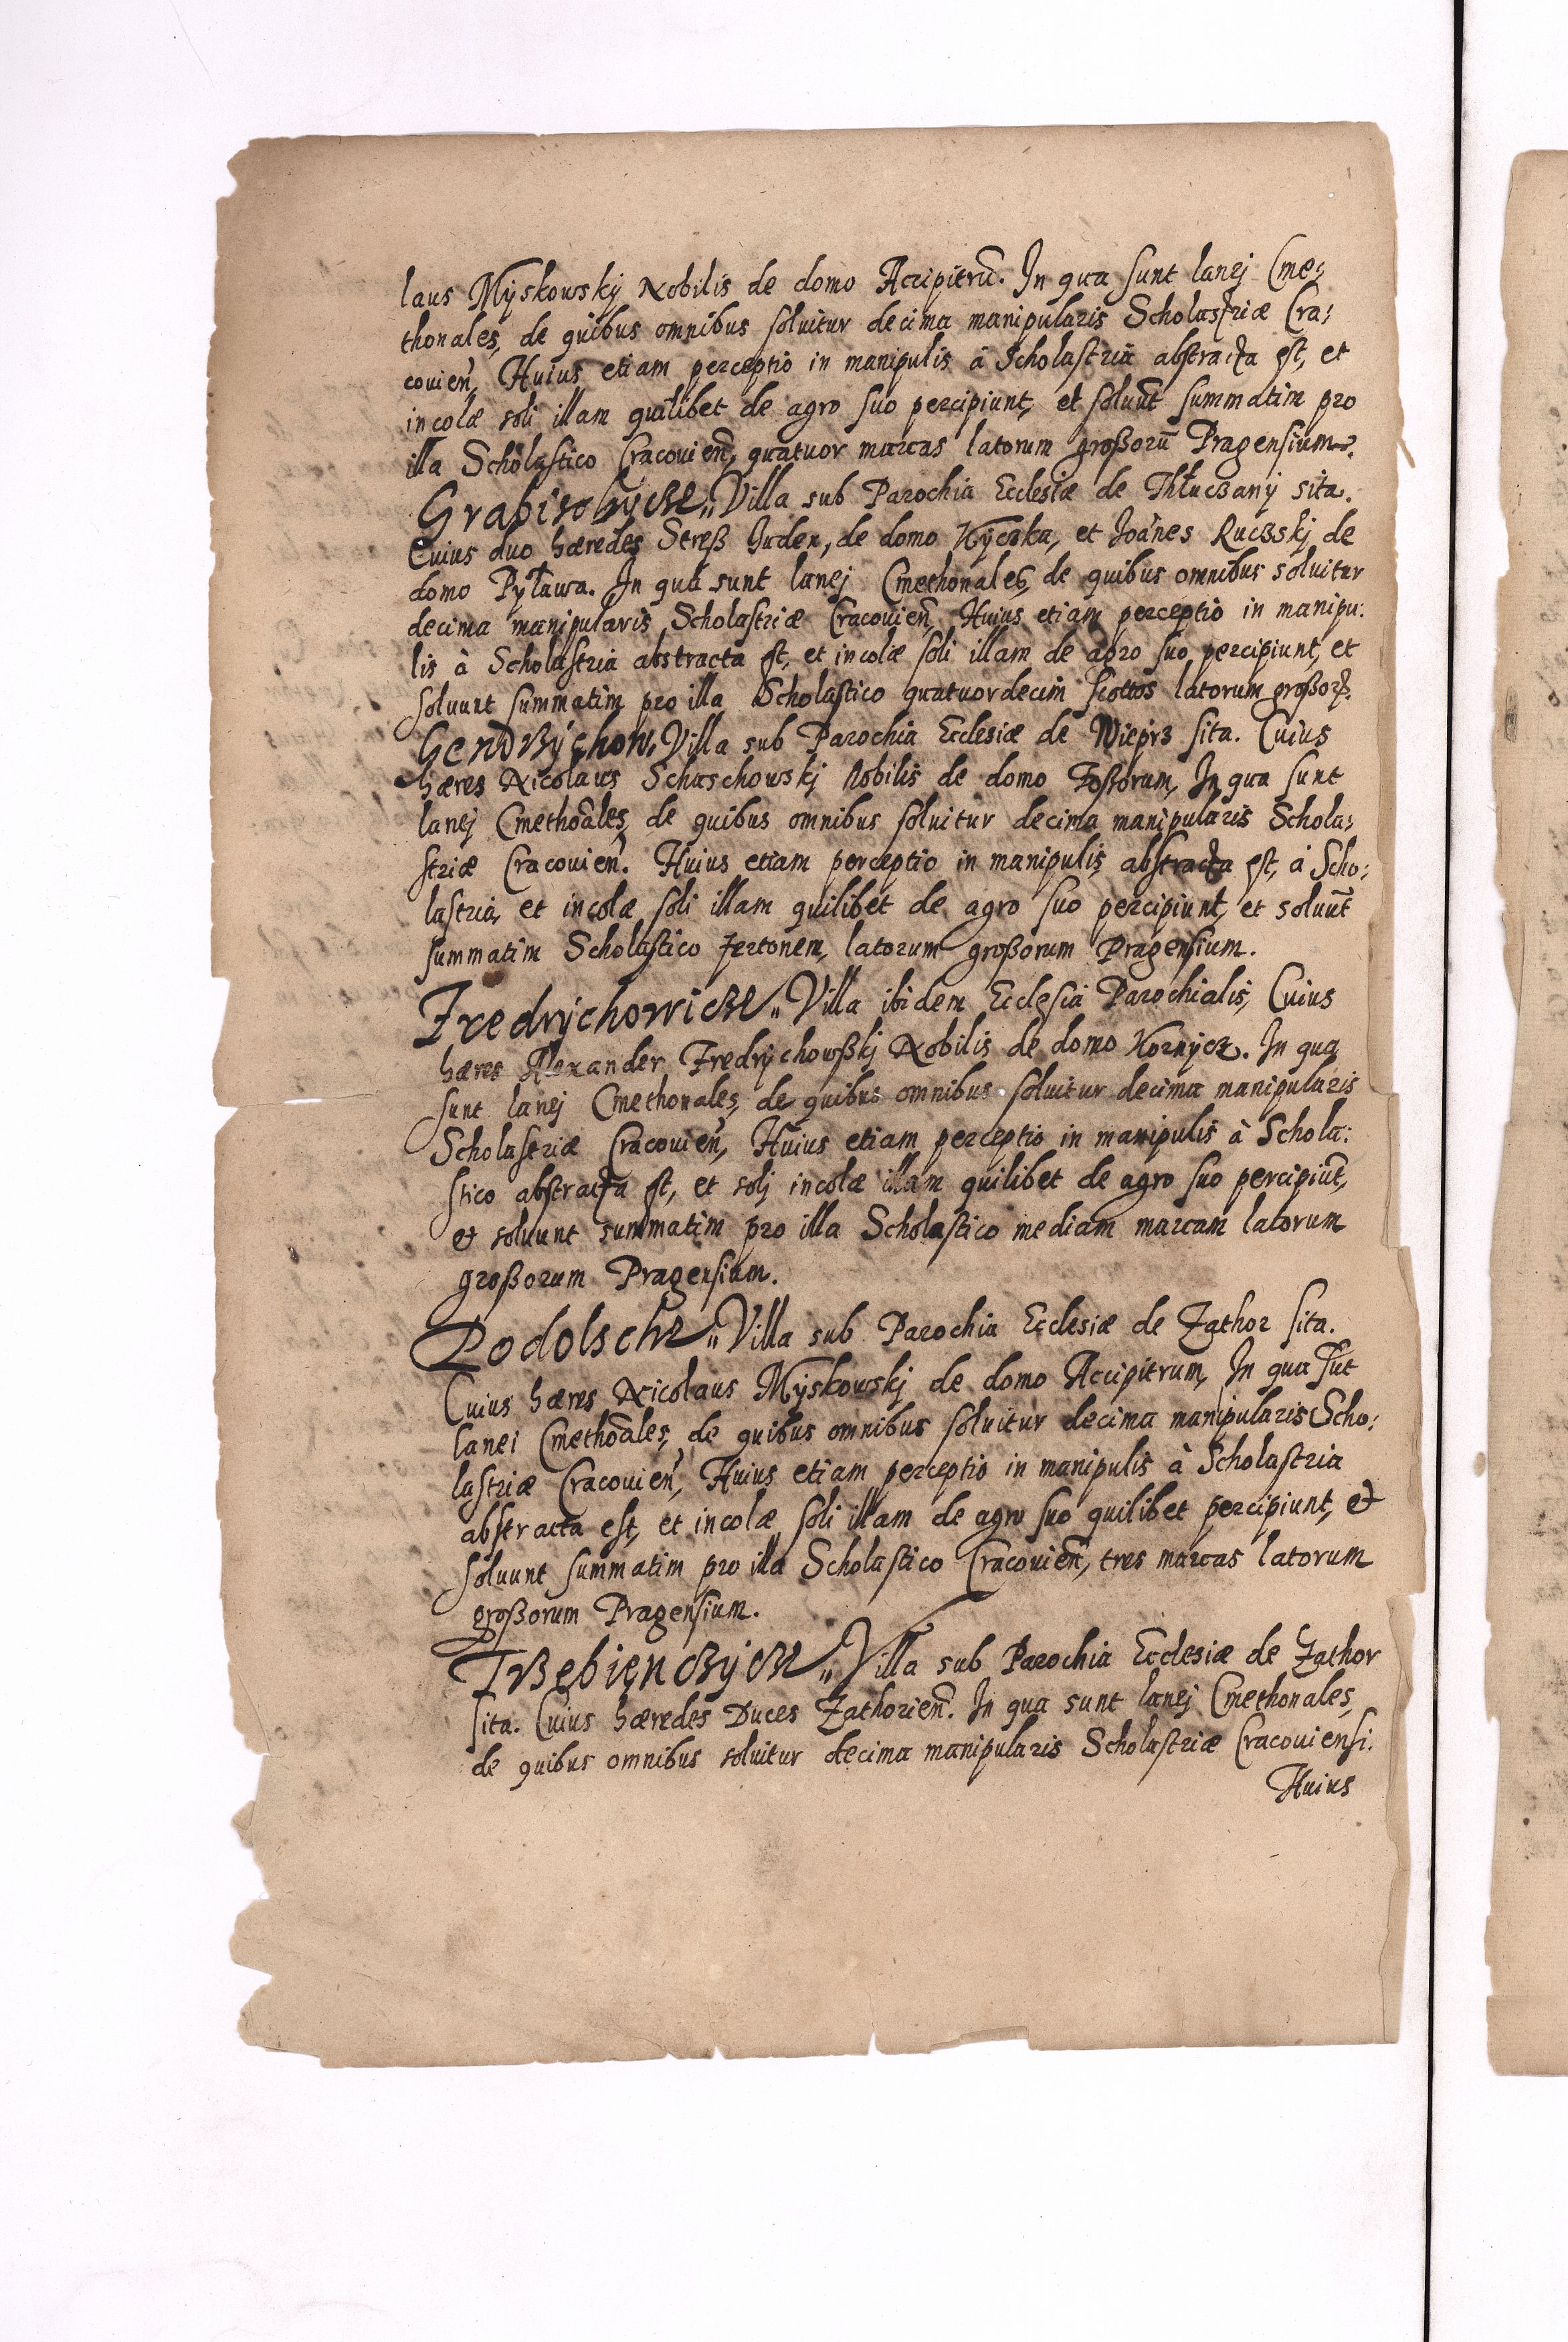 laus Myskowskj Nobilis de domo Accipitrū. In qua sunt lanej Cme:
thonales, de quibus omnibus soluitur decima manipularis Scholastriæ Cra:
couieñ, Huius etiam perceptio in manipulis à Scholastria abstracta est, et
incolæ soli illam quilibet de agro suo percipiunt, et soluūt summatim pro
illa Scholastico Cracouieñ, quatuor marcas latorum großorū Pragensium.
Villa sub Parochia Ecclesiæ de Thłuczanÿ sita.
Cuius duo hæredes Streß Iudex, de domo Kÿczka, et Ioānes Ruczskj de
domo Pyława. In qua sunt lanej Cmethonales, de quibus omnibus soluitur
decima manipularis Scholastriæ Cracouieñ, Huius etiam perceptio in manipu:
lis à Scholastria abstracta est, et incolæ soli illam de agro suo percipiunt, et
soluunt summatim pro illa Scholastico quatuordecim scottos latorum großorꝝ.
Gendrzÿchow, Villa sub Parochia Ecclesiæ de Wieprz sita. Cuius
hæres Nicolaus Schaschowskj Nobilis de domo Foßorum, In qua sunt
lanej Cmethōales, de quibus omnibus soluitur decima manipularis Schola:
striæ Cracouieñ. Huius etiam perceptio in manipulis abstracta est, à Scho:
lastria, et incolæ soli illam quilibet de agro suo percipiunt, et soluūt
summatim Scholastico fertonem, latorum großorum Pragensium.
Fredrÿchowicze„ Villa ibidem Ecclesia Parochialis, Cuius
hæres Alexander Fredrychowßkj Nobilis de domo Kornÿcz. In qua
sunt lanej Cmethonales, de quibus omnibus soluitur decima manipularis
Scholastriæ Cracouieñ, Huius etiam perceptio in manipulis à Schola:
stico abstracta est, et solj incolæ illam quilibet de agro suo percipiūt,
et soluunt summatim pro illa Scholastico mediam marcam latorum
großorum Pragensium.
Podolscze„ Villa sub Parochia Ecclesiæ de Zathor sita.
Cuius hæres Nicolaus Myskowskj de domo Accipitrum, In qua sūt
lanei Cmethōales, de quibus omnibus soluitur decima manipularis Scho:
lastriæ Cracouieñ, Huius etiam perceptio in manipulis à Scholastria
abstracta est, et incolæ soli illam de agro suo quilibet percipiunt, et
soluunt summatim pro illa Scholastico Cracouieñ, tres marcas latorum
großorum Pragensium.
Trzebięnczÿcze„ Villa sub Parochia Ecclesiæ de Zathor
sita. Cuius hæredes Duces Zathorieñ. In qua sunt lanej Cmethonales,
de quibus omnibus soluitur decima manipularis Scholastriæ Cracouiensi.
Huius